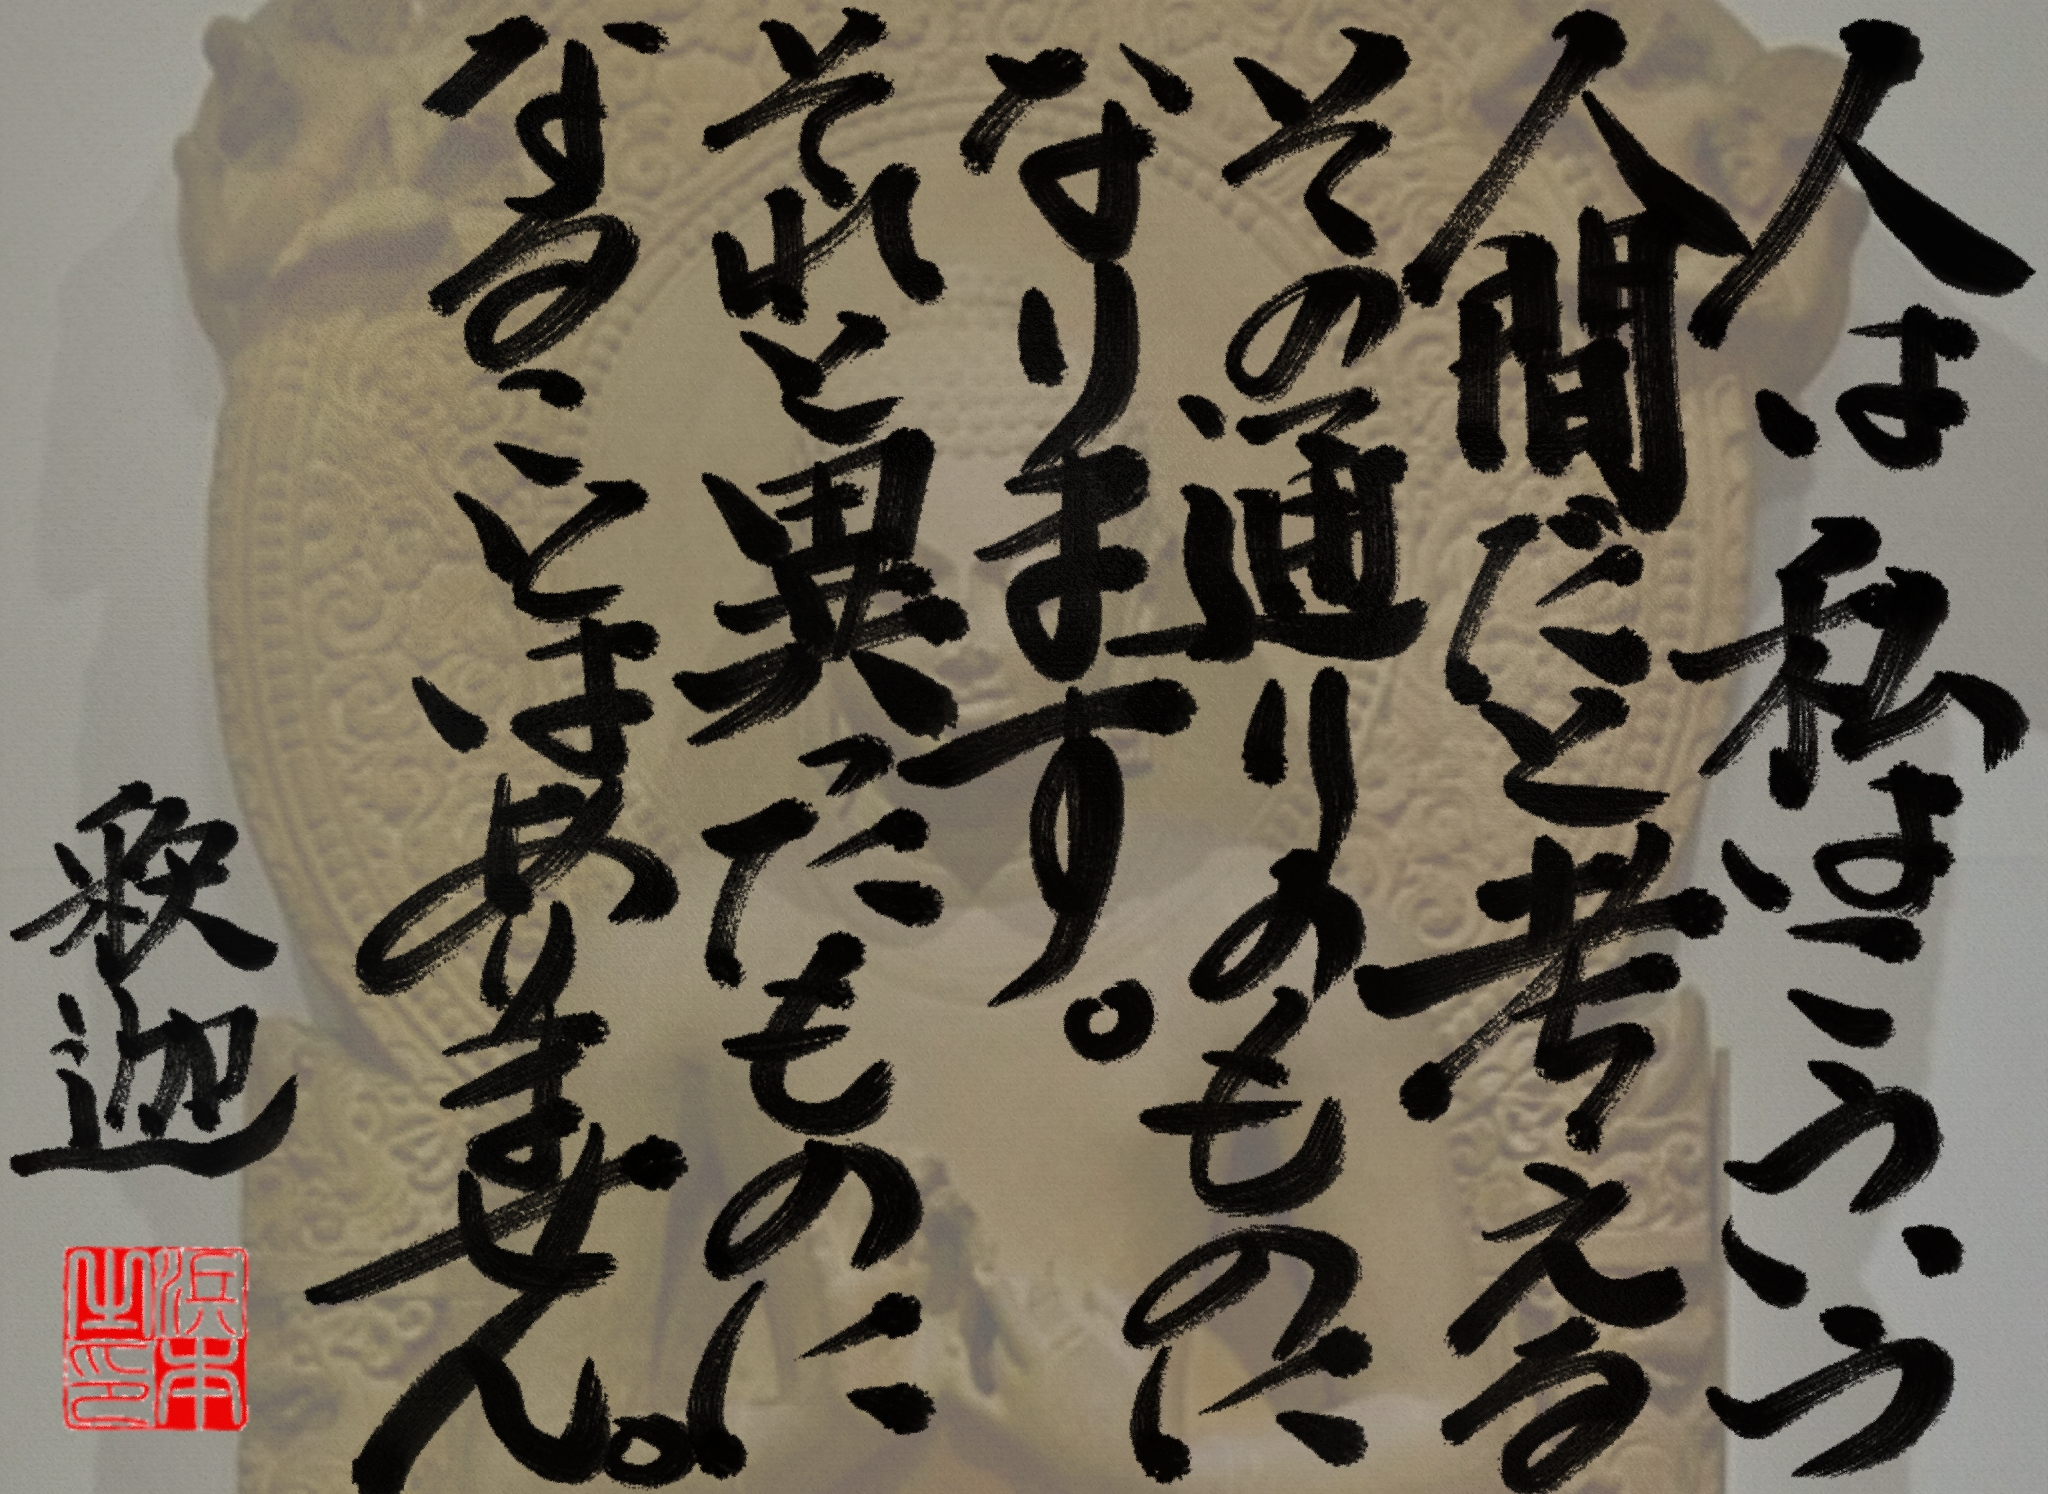 人は私はこういう
人間だと考える
その通りのものに
なります。
それと異ったものに
なることはありません。
釈迦
浜本之印